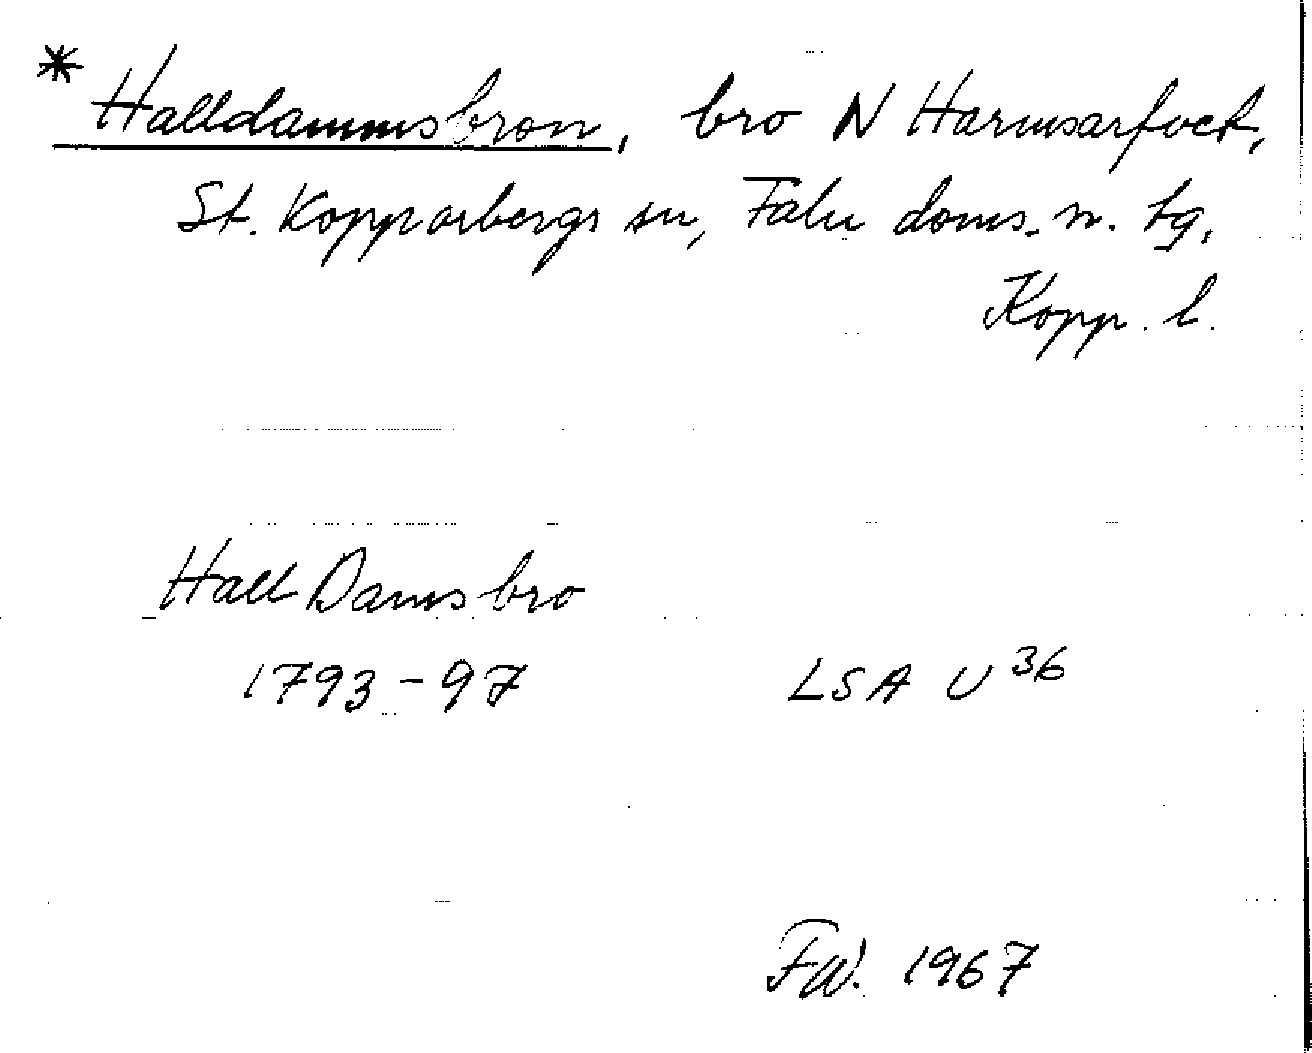 * Halldammsbron, bro N Harmsarfvet,
St. Kopparbergs sn, Falu doms. n. tg,
Kopp. l.
Hall Dams bro
1793-97 LSA U 36
FW. 1967